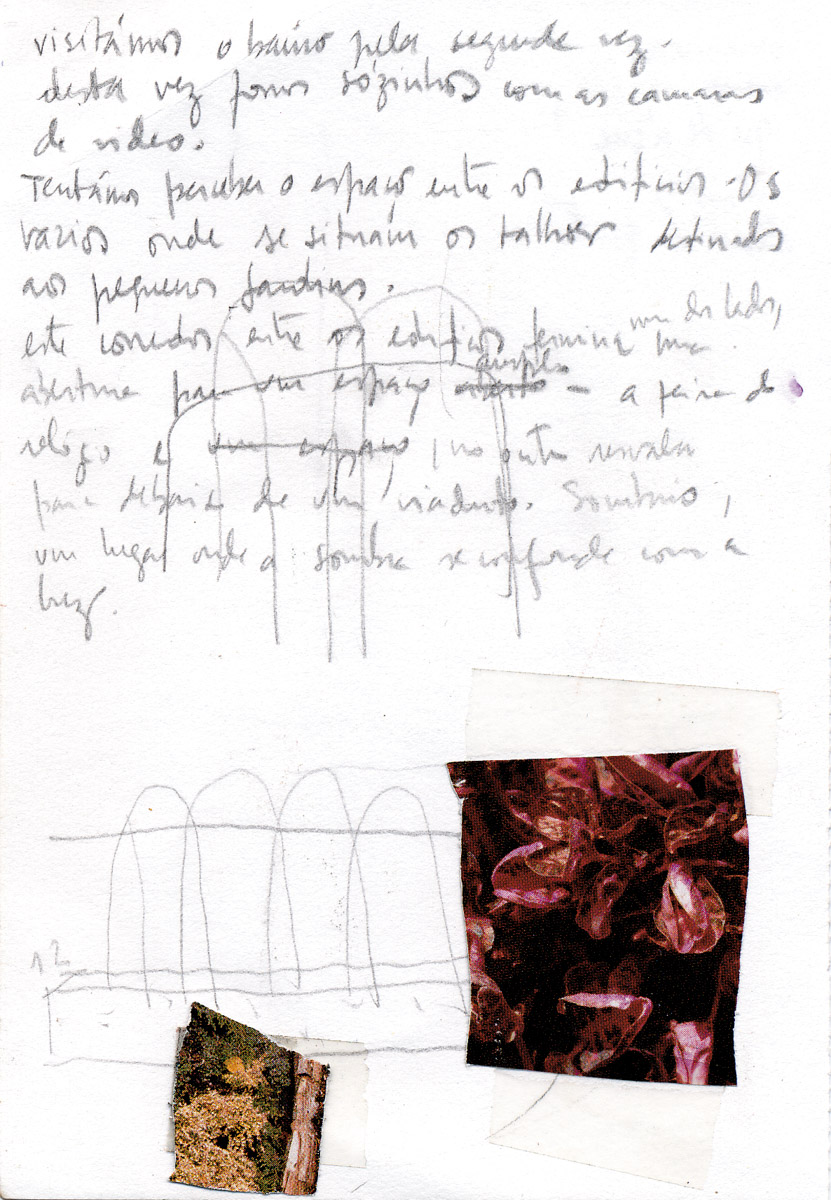 visitámos o bairro pela segunda vez.
desta vez fomos sózinhos com as camaras
de video.
Tentámos perceber o espaço entre os edificios. Os
vazios onde se situam os talhões destinados
aos pequenos jardins.
este corredor entre os edificios termina num dos lados, numa
abertura para um espaço amplo aberto - a feira do
relógio e um espaço, no outro resvala
para debaixo de um viaduto. Sombrio,
um lugar onde a sombra se confunde com a
luz.
12